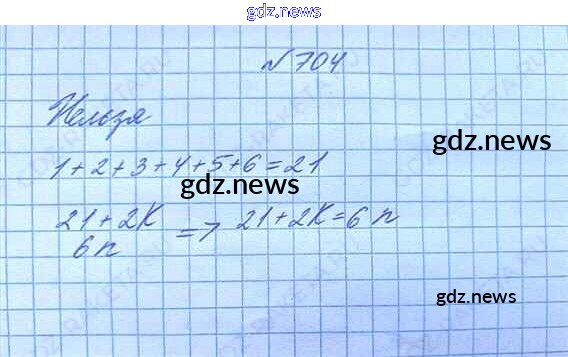 gdz.news
№704
Нельзя
gdz.news
1+2+3+4+5+6=21
gdz.news
21+2K
6n
=> 21+2K=6n
gdz.news